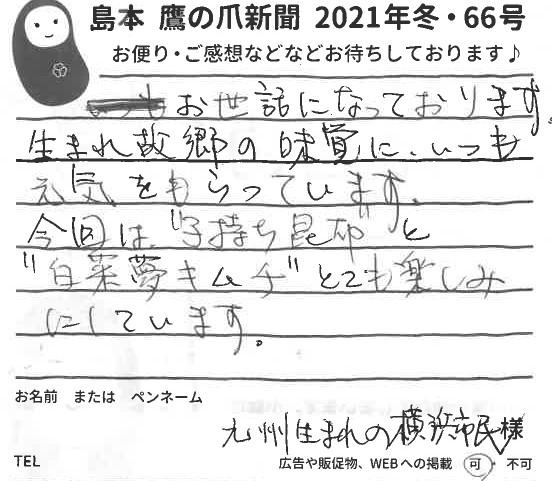 島本 鷹の爪新聞 2021年冬・66号
お便り・ご感想などなどお待ちしております♪
お世話になっております。
生まれ故郷の味覚に、いつも
元気をもらっています。
今回は、"子持ち昆布"と
"白菜夢キムチ"とても楽しみ
にしています。
お名前 または ペンネーム
九州生まれの横浜市民様
TEL
広告や販促物、WEBへの掲載 可・不可